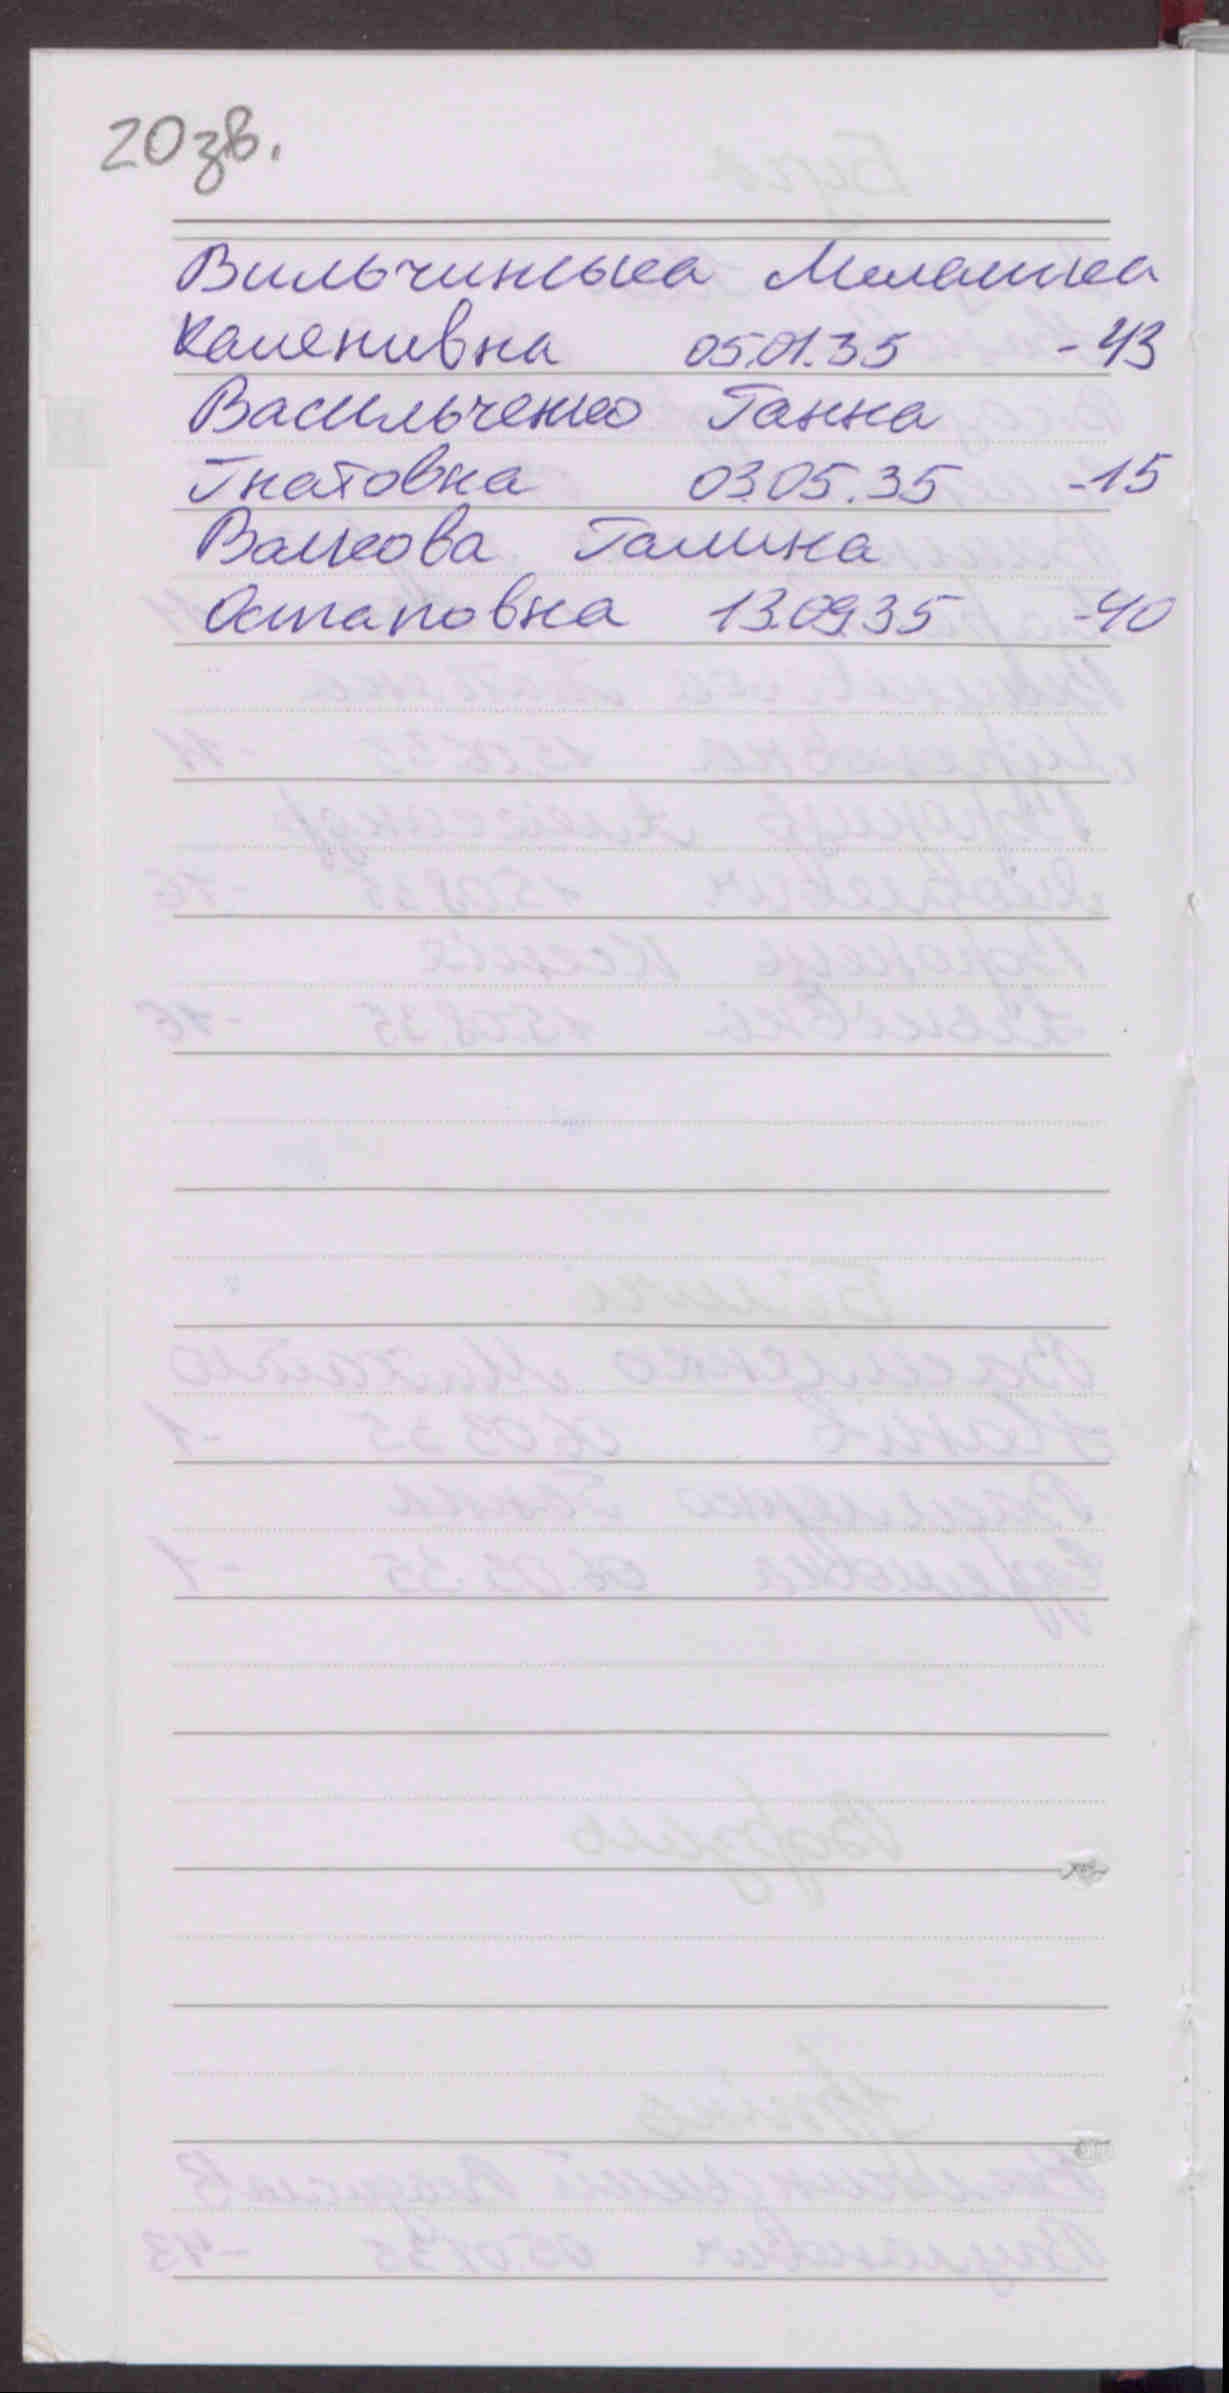 20 зв.
Вильчинська Мелашка
Каленивна 05.01.35 -43
Васильченко Ганна
Гнатовна 03.05.35 -15
Валкова Галина
Остаповна 13.09.35 -40